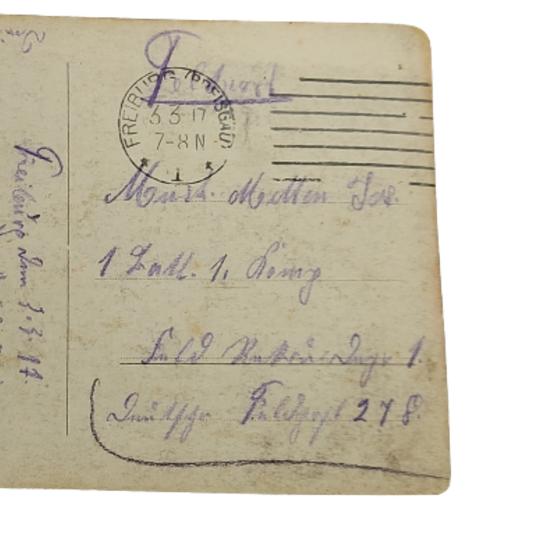 Feldpost
FREIBURG (BREISGAU)
3 3 17
7-8 N
* 1 *
Musk. Jos.
1 Batl. 1. Komp
Feld 1.
Deutsche Feldpost 278
Freiburg den 3.3.17